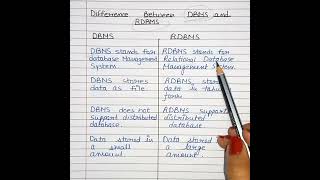 Difference Between DBMS and
RDBMS
DBMS
RDBMS
DBMS stands for
database Management
System
RDBMS stands for
Relational Database
Management System.
DBMS stores
data as file
RDBMS,
data in
form.
DBMS does not
support distributed
database.
RDBMS support
distributed
database.
Data stored in
a small
amount.
Data stored
a large
amount.